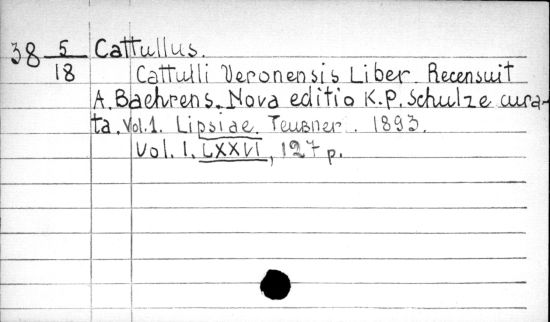 38 5/18 Cattullus.
Cattulli Veronensis Liber Recensuit
A. Baehrens. Nova editio K.P. Schulze cura-
ta. Vol.1. Lipsiae. Teubner. 1893.
Vol. I. LXXVI, 127 p.